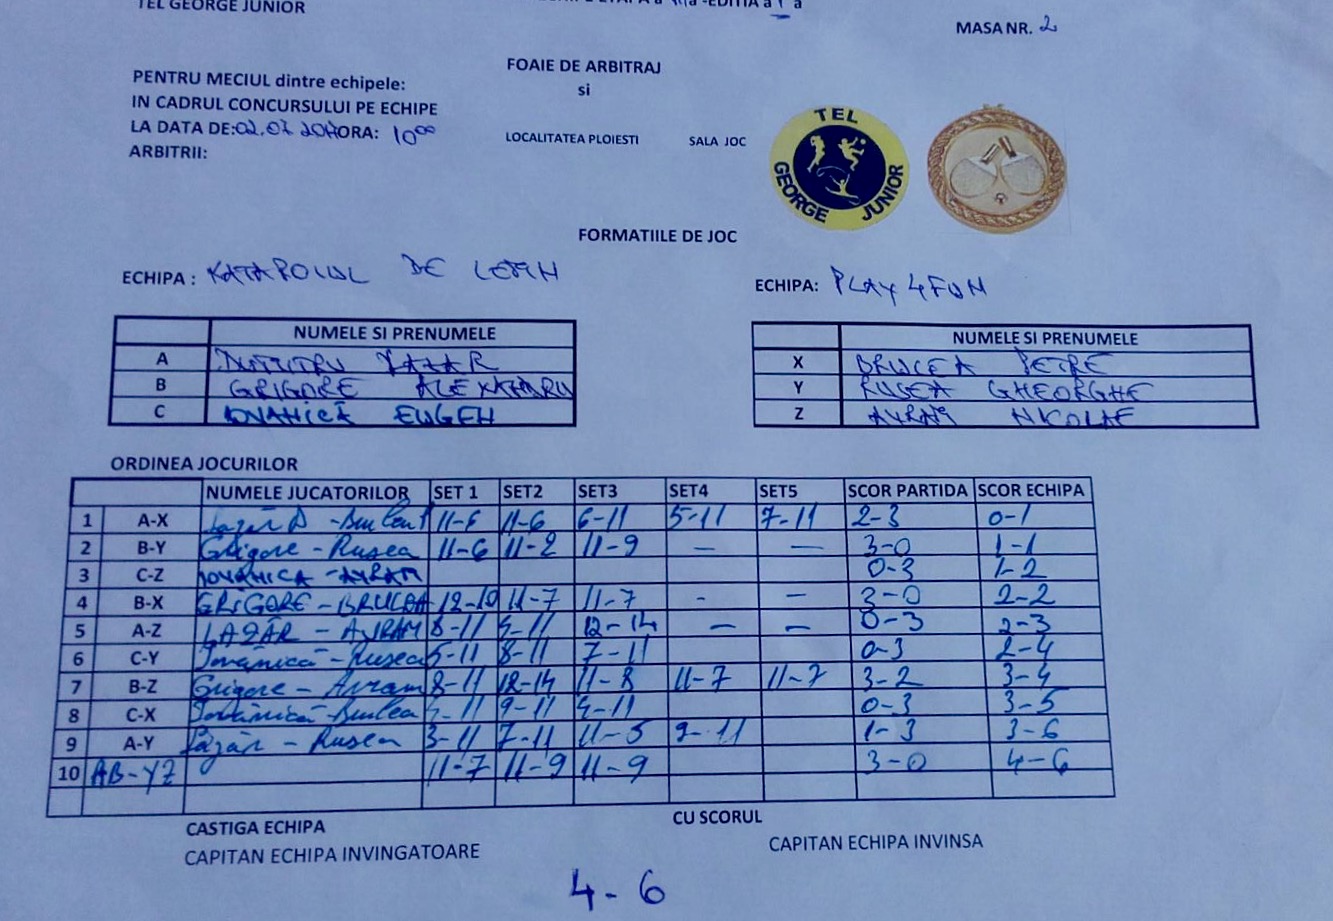 TEL GEORGE JUNIOR
-EDITIA a I a
MASA NR. 2
FOAIE DE ARBITRAJ
PENTRU MECIUL dintre echipele:
si
IN CADRUL CONCURSULUI PE ECHIPE
LA DATA DE: 02.07 ORA: 10⁰⁰
LOCALITATEA PLOIESTI SALA JOC
ARBITRII:
TEL
GEORGE JUNIOR
FORMATIILE DE JOC
ECHIPA : DE LEMN
ECHIPA: PLAY 4 FUN
NUMELE SI PRENUMELE
A DUMITRU LAZAR
B GRIGORE ALEXANDRU
C IOVANICĂ EUGEN
NUMELE SI PRENUMELE
X BRUCEA PETRE
Y RUSEA GHEORGHE
Z AVRAM NICOLAE
ORDINEA JOCURILOR
NUMELE JUCATORILOR SET 1 SET2 SET3 SET4 SET5 SCOR PARTIDA SCOR ECHIPA
1 A-X Lazăr D - 11-6 6-11 5-11 7-11 2-3 0-1
2 B-Y Grigore - Rusea 11-6 11-2 11-9 — — 3-0 1-1
3 C-Z IOVANICA - AVRAM 0-3 1-2
4 B-X GRIGORE - BRUCEA 12-10 11-7 11-7 - - 3-0 2-2
5 A-Z LAZĂR - AVRAM 8-11 12-14 — — 0-3 2-3
6 C-Y Iovănică - Rusea 5-11 8-11 7-11 0-3 2-4
7 B-Z Grigore - Avram 8-11 12-14 11-8 11-7 11-7 3-2 3-4
8 C-X Iovănică - 9-11 0-3 3-5
9 A-Y Lăzăr - Rusea 3-11 7-11 11-5 9-11 1-3 3-6
10 AB-YZ 11-7 11-9 11-9 3-0 4-6
CASTIGA ECHIPA CU SCORUL
CAPITAN ECHIPA INVINGATOARE CAPITAN ECHIPA INVINSA
4 - 6